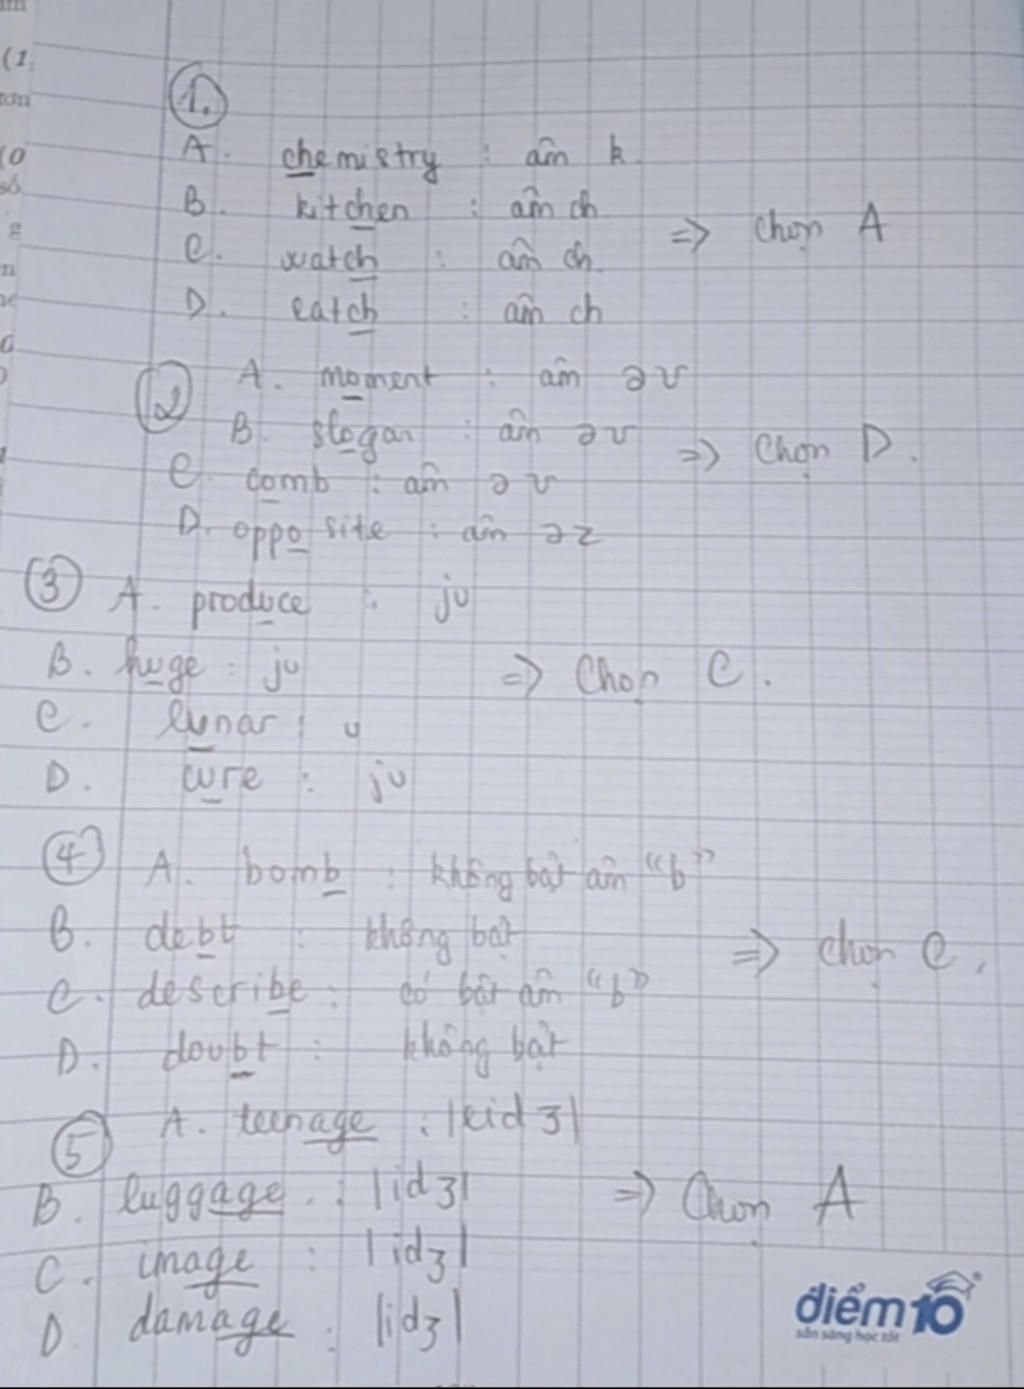 1.
A. chemistry : âm k
B. kitchen : âm ch
C. watch : âm ch.
=> chọn A
D. catch : âm ch
2
A. moment : âm əʊ
B. slogan : âm əʊ
=> Chọn D.
C. comb : âm əʊ
D. opposite : âm əz
3
A. produce : ju
B. huge : ju
=> Chọn C.
C. lunar : u
D. cure : ju
4
A. bomb : không bật âm "b"
B. debt : không bật
=> chọn C.
C. describe : có bật âm "b"
D. doubt : không bật
5
A. teenage : |eidʒ|
B. luggage : |idʒ|
=> Chọn A
C. image : |idʒ|
D. damage : |idʒ|
điểm10
sẵn sàng học tốt